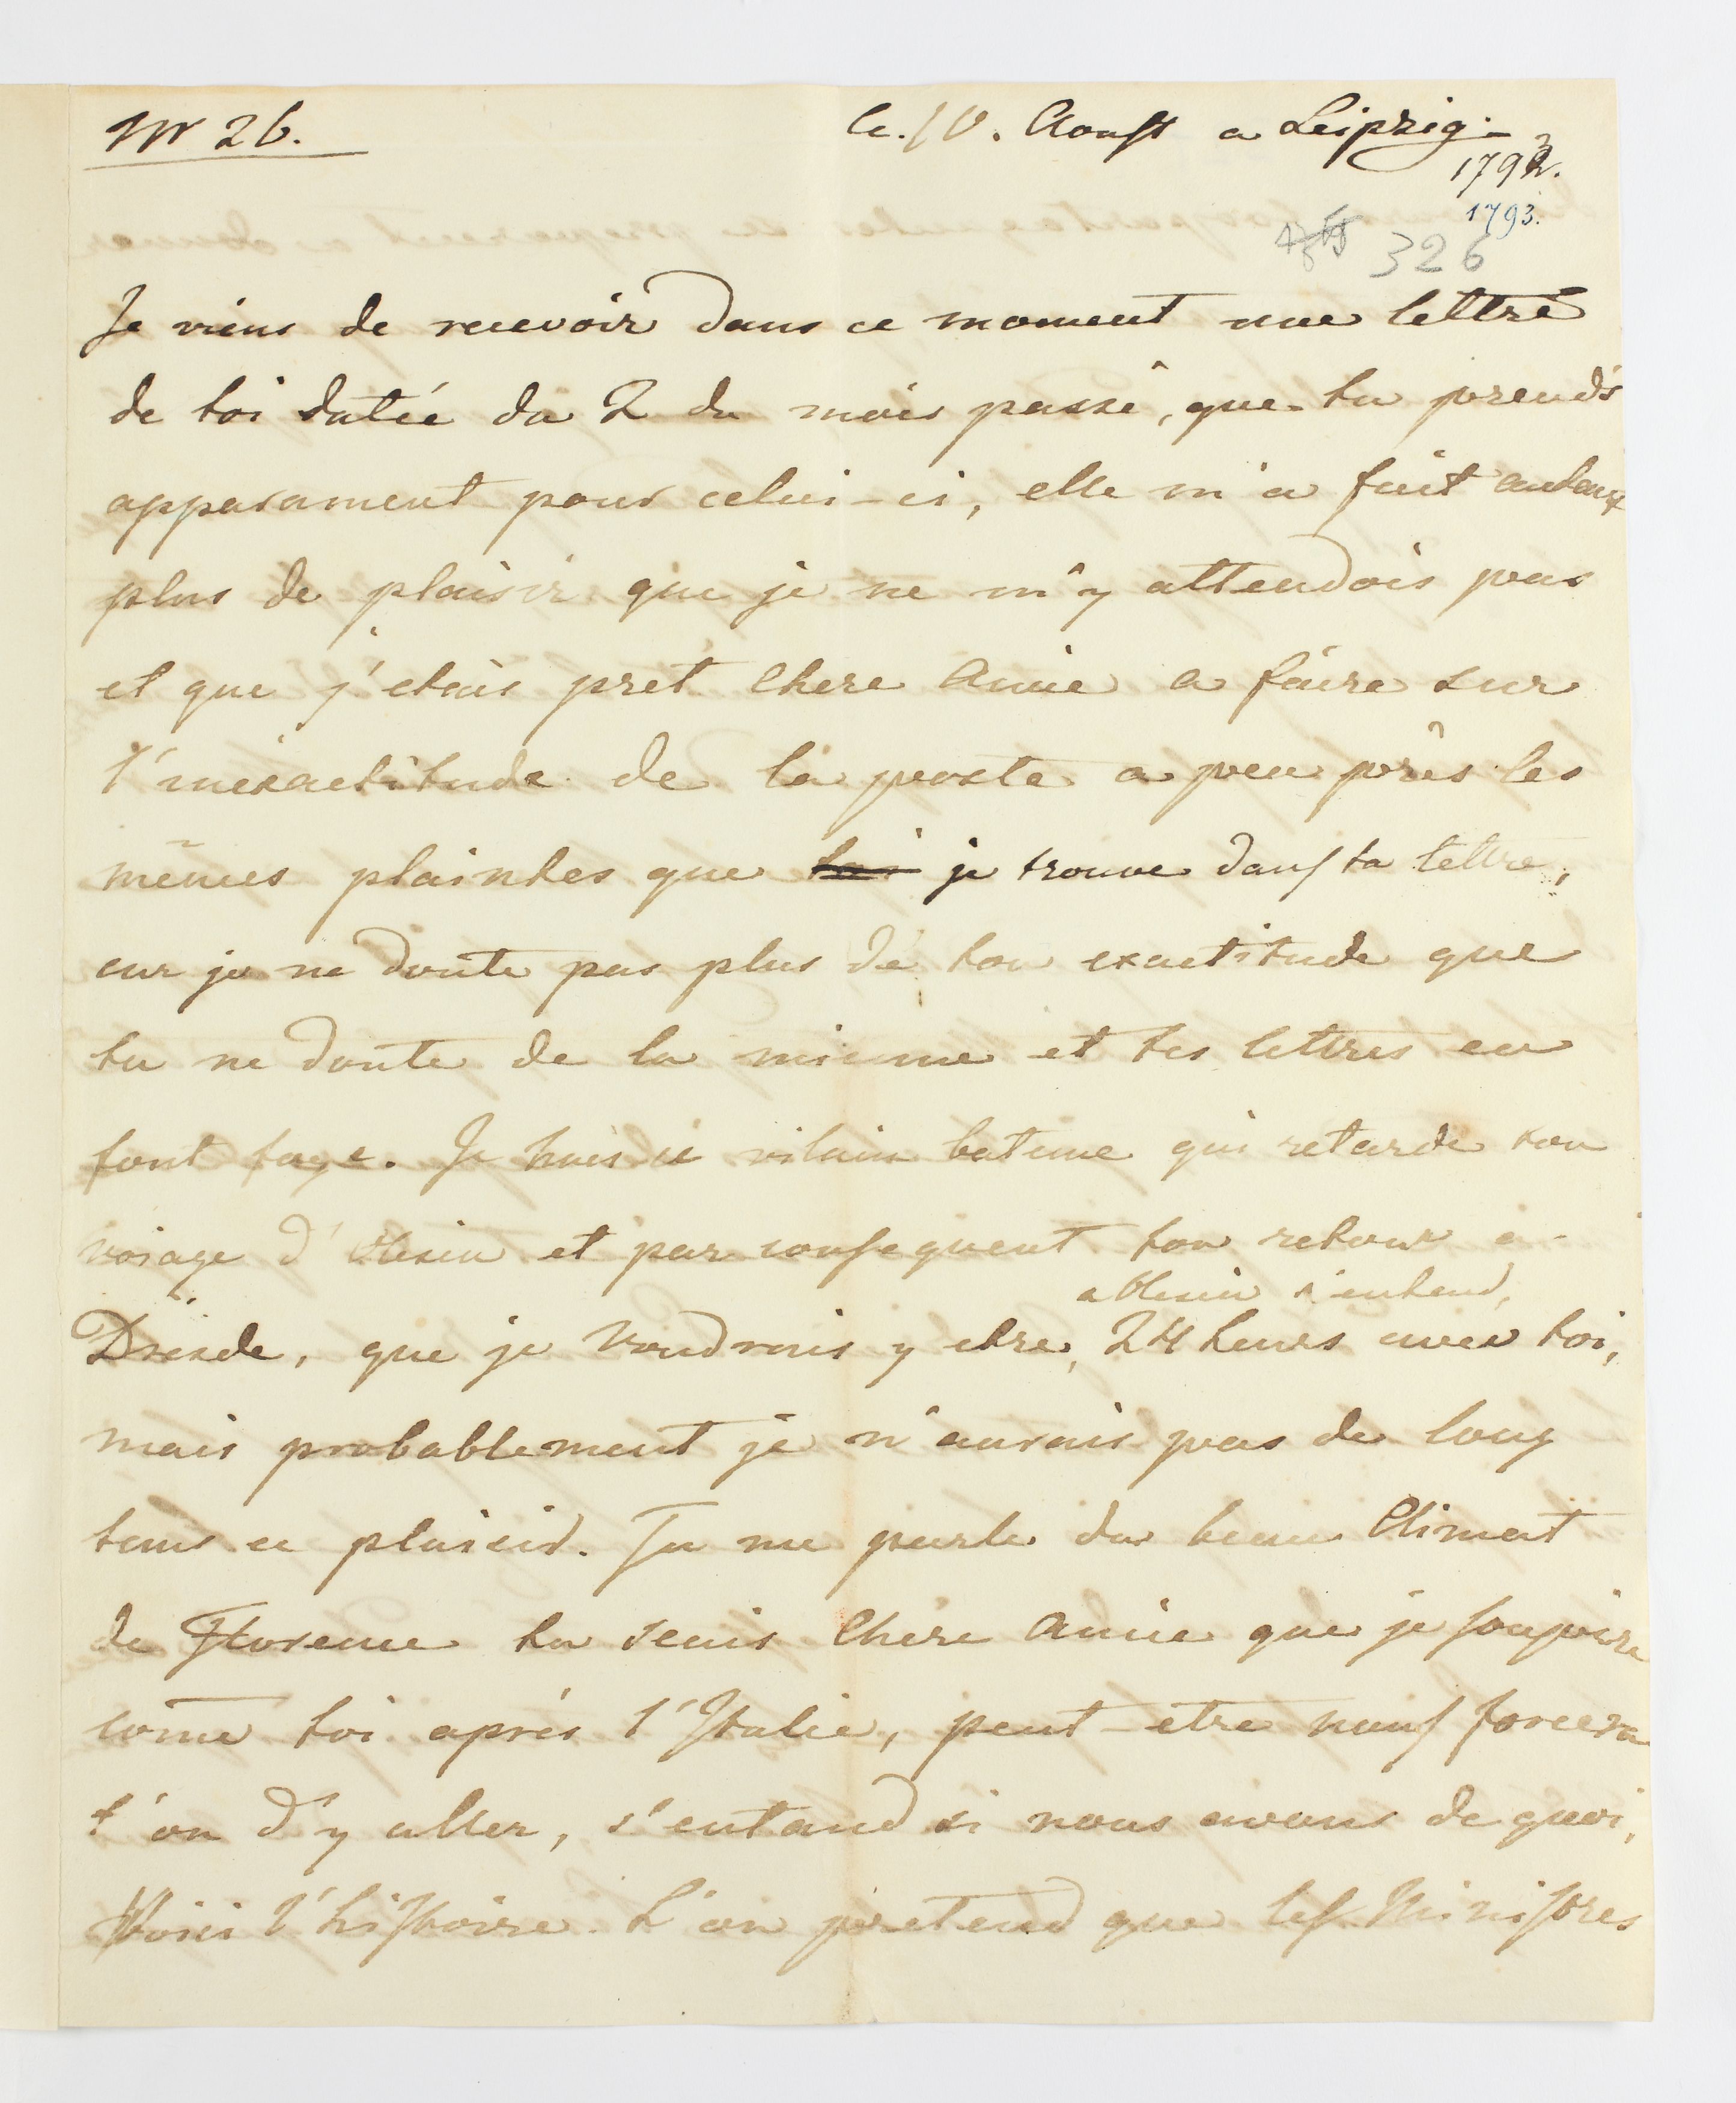 Nr 26.
le. 10. Aoust a Leipzig.
1793.
1793.
326
Je viens de recevoir dans ce moment une lettre
de toi datée du 2 du mois passé, que tu prends
apparament pour celui-ci, elle m'a fait autant
plus de plaisir que je ne m'y attendois pas
et que j'etais pret chere Amie a faire sur
l'inexactitude de la poste a peu près les
mêmes plaintes que toi je trouve dans ta lettre,
car je ne doute pas plus de ton exactitude que
tu ne doute de la mienne et tes lettres en
font foye. Je hais ce vilain bateme qui retarde ton
voiage d' et par consequent ton retour a
a s'entend,
Dresde, que je voudrais y etre, 24 heurs avec toi,
mais probablement je n'aurais pas de long
tems ce plaisir. Tu me parle du beau Climat
de Florence tu sais Chere Amie que je soupire
come toi après l'Italie, peut-etre nous forcera
t'on d'y aller, s'entand si nous avons de quoi,
Voici l'histoire. L'on pretend que les Ministres